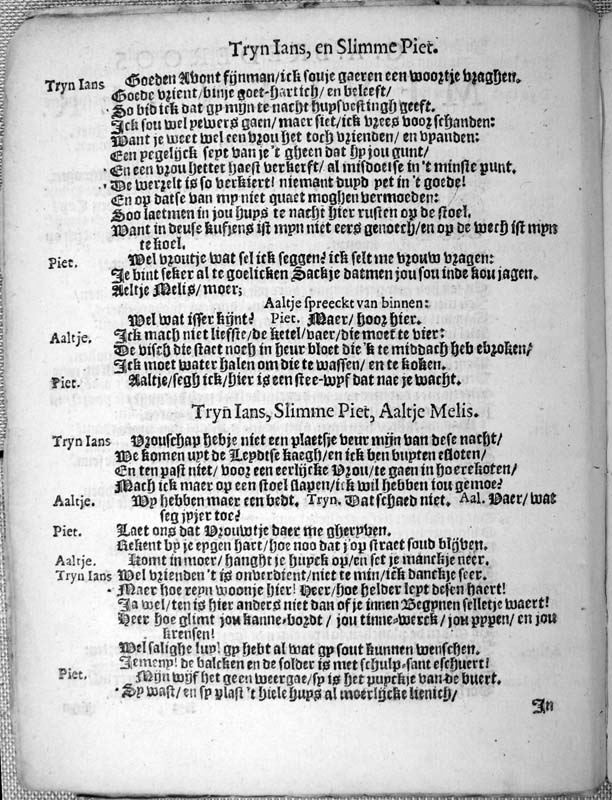 Tryn Ians, en Slimme Piet.
Tryn Ians Goeden Avont fijnman/ick souje gaeren een woortje vraghen.
Goede vrient/binje goet-hartich/en beleeft/
So bid ick dat gy mijn te nacht huysvestingh geeft.
Ick sou wel yewers gaen/maer siet/ick vrees voor schanden:
Want je weet wel een vrou het toch vrienden/en vyanden:
Een yegelijck seyt van je 't gheen dat hy jou gunt/
En een vrou hetter haest verkerft/al misdoetse in 't minste punt.
De werrelt is so verkiert! niemant duyd yet in 't goede!
En op datse van myn niet quaet moghen vermoeden:
Soo laetmen in jou huys te nacht hier rusten op de stoel.
Want in deuse kufjens ist myn niet eers genoech/en op de wech ist myn
te koel.
Piet. Wel vroutje wat sel ick seggen? ick selt me vrouw vragen:
Je bint seker al te goelicken Sackje datmen jou sou inde kou jagen.
Aeltje Melis/moer;
Aaltje spreeckt van binnen:
Wel wat isser kijnt? Piet. Maer/hoor hier.
Aaltje. Ick mach niet liefste/de ketel/vaer/die moet te vier:
De visch die staet noch in heur bloet die 'k te middach heb ebroken/
Ick moet water halen om die te wassen/en te koken.
Piet. Aaltje/segh ick/hier is een stee-wyf dat nae je wacht.
Tryn Ians, Slimme Piet, Aaltje Melis.
Tryn Ians Vrouschap hebje niet een plaetsje veur mijn van dese nacht/
We komen uyt de Leydtse kaegh/en ick ben buyten esloten/
En ten past niet/voor een eerlijcke Vrou/te gaen in hoerekoten/
Mach ick maer op een stoel slapen/ick wil hebben jou gemoe?
Aaltje. Wy hebben maer een bedt. Tryn. Dat schaed niet. Aal. Vaer/wat
seg jyjer toe?
Piet. Laet ons dat Vrouwtje daer me gheryven.
Rekent by je eygen hart/hoe noo dat j'op straet soud blijven.
Aaltje. Komt in moer/hanght je huyck op/en set je manckje neer.
Tryn Ians Wel vrienden 't is onverdient/niet te min/ick danckje seer.
Maer hoe reyn woonje hier! Heer/hoe helder leyt desen haert!
Ja wel/ten is hier anders niet dan of je innen Begynen selletje waert!
Heer hoe glimt jou kanne-bordt/jou tinne-werck/jou pypen/en jou
krensen!
Wel salighe luy! gy hebt al wat gy sout kunnen wenschen.
Jemeny! de balcken en de solder is met schulp-sant eschuert!
Piet. Mijn wijf het geen weergae/sy is het puyckje van de buert.
Sy wast/en sy plast 't hiele huys al moerlijcke lienich/
In